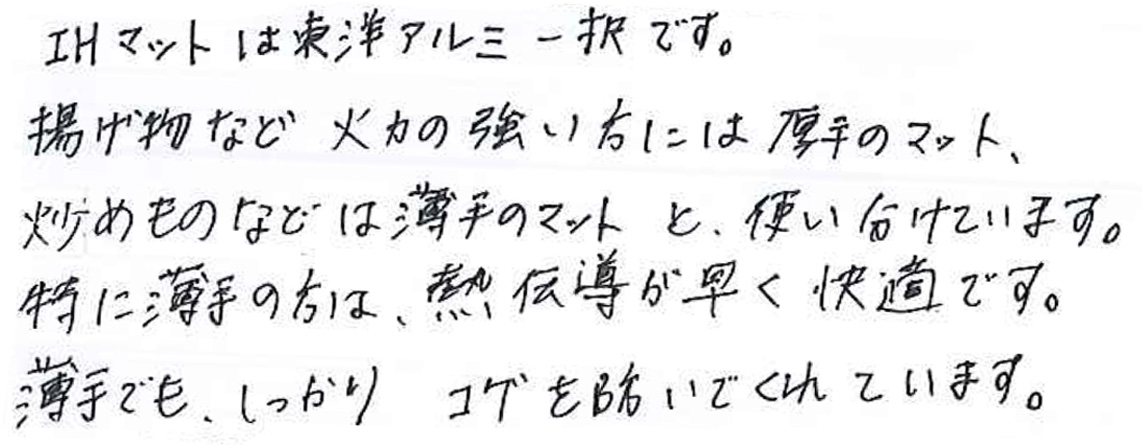 IHマットは東洋アルミ一択です。
揚げ物など火力の強い方には厚手のマット、
炒めものなどは薄手のマットと、使い分けています。
特に薄手の方は、熱伝導が早く快適です。
薄手でも、しっかりコゲを防いでくれています。